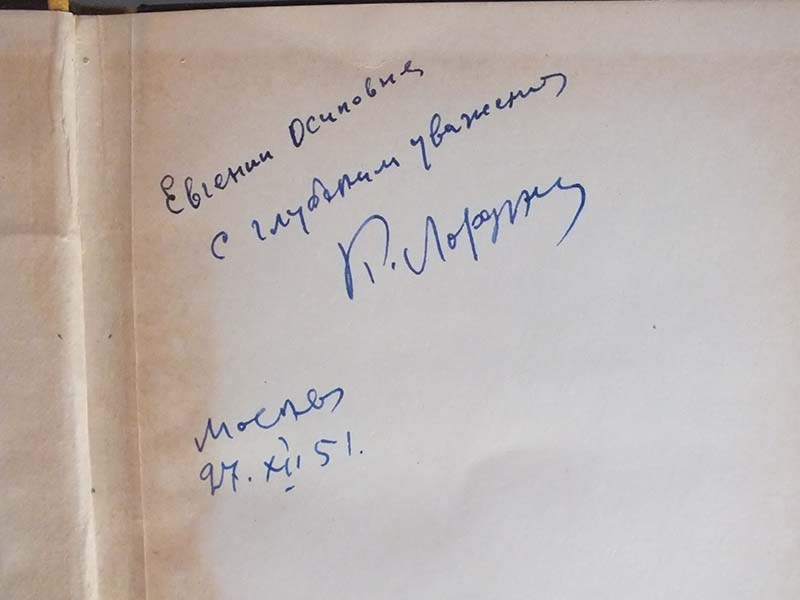 Евгении Осиповне
с глубоким уважением
Москва
27. XII 51.